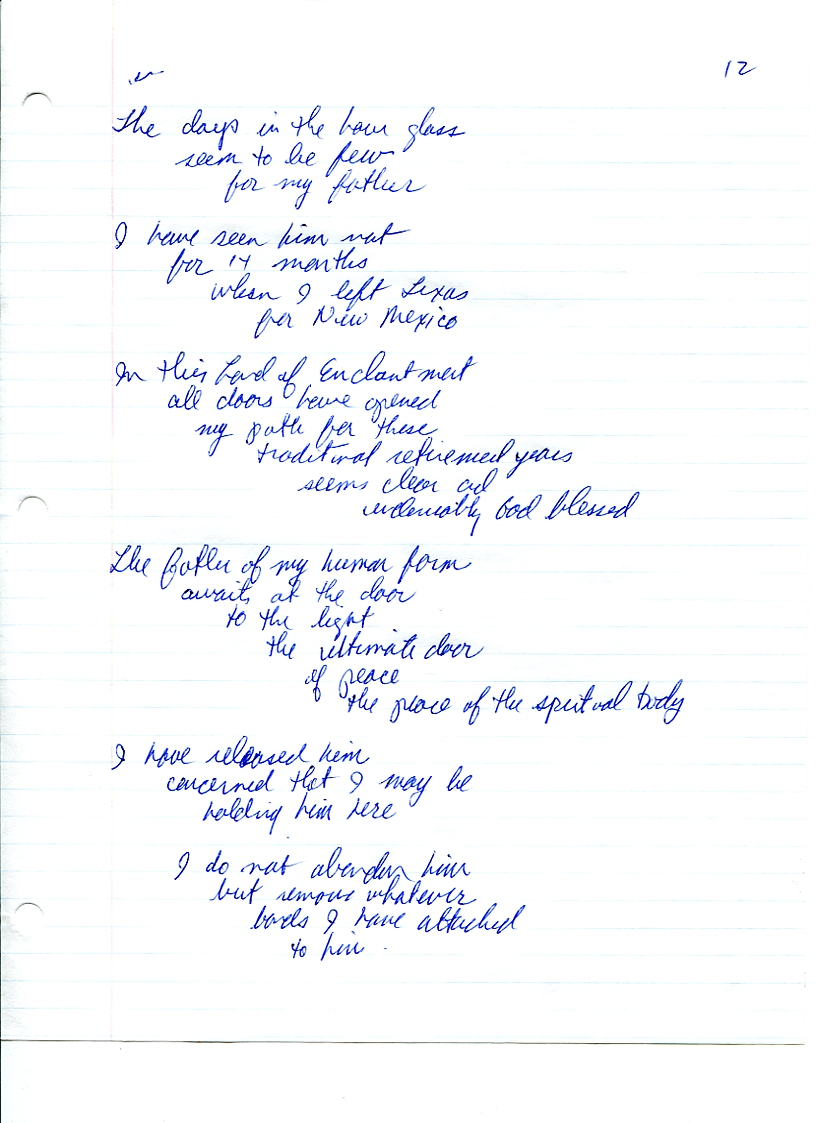 12
The days in the hour glass
seem to be few
for my father
I have seen him not
for 14 months
when I left Texas
for New Mexico
In this Land of Enchantment
all doors have opened
my path for these
traditional retirement years
seems clear and
undeniably God blessed
The father of my human form
awaits at the door
to the light
the ultimate door
of peace
the peace of the spiritual body
I have released him
concerned that I may be
holding him here
I do not abandon him
but remove whatever
bonds I have attached
to him.